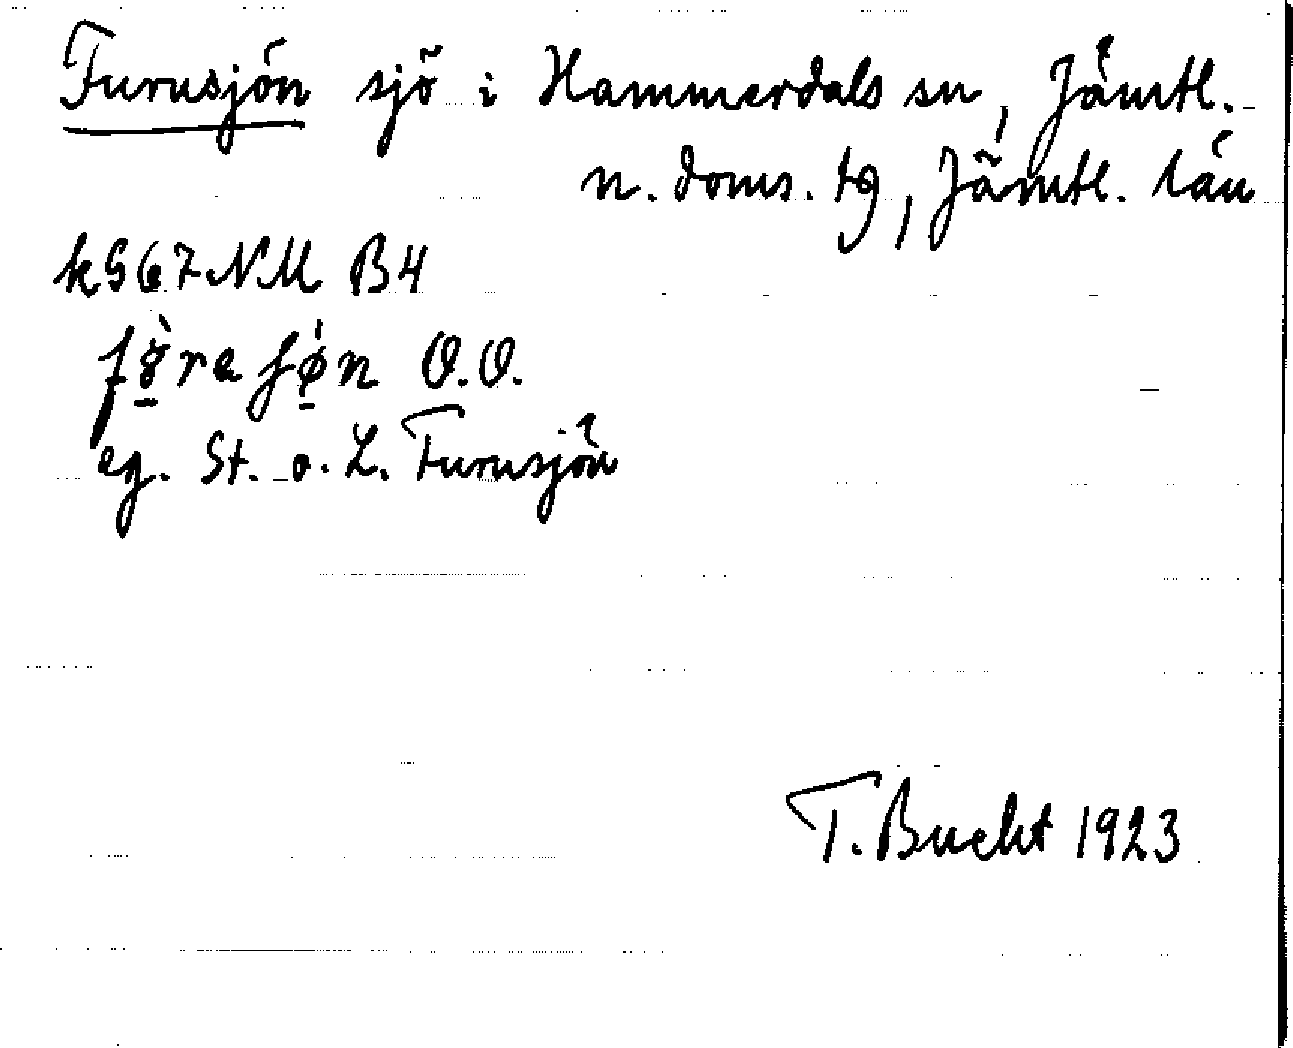 Furusjön sjö i Hammerdals sn, Jämtl.
n. doms. tg, Jämtl. län
k567NM B4
fø̀reʃø̍n O.O.
eg. St. o. L. Furusjön
T. Bucht 1923